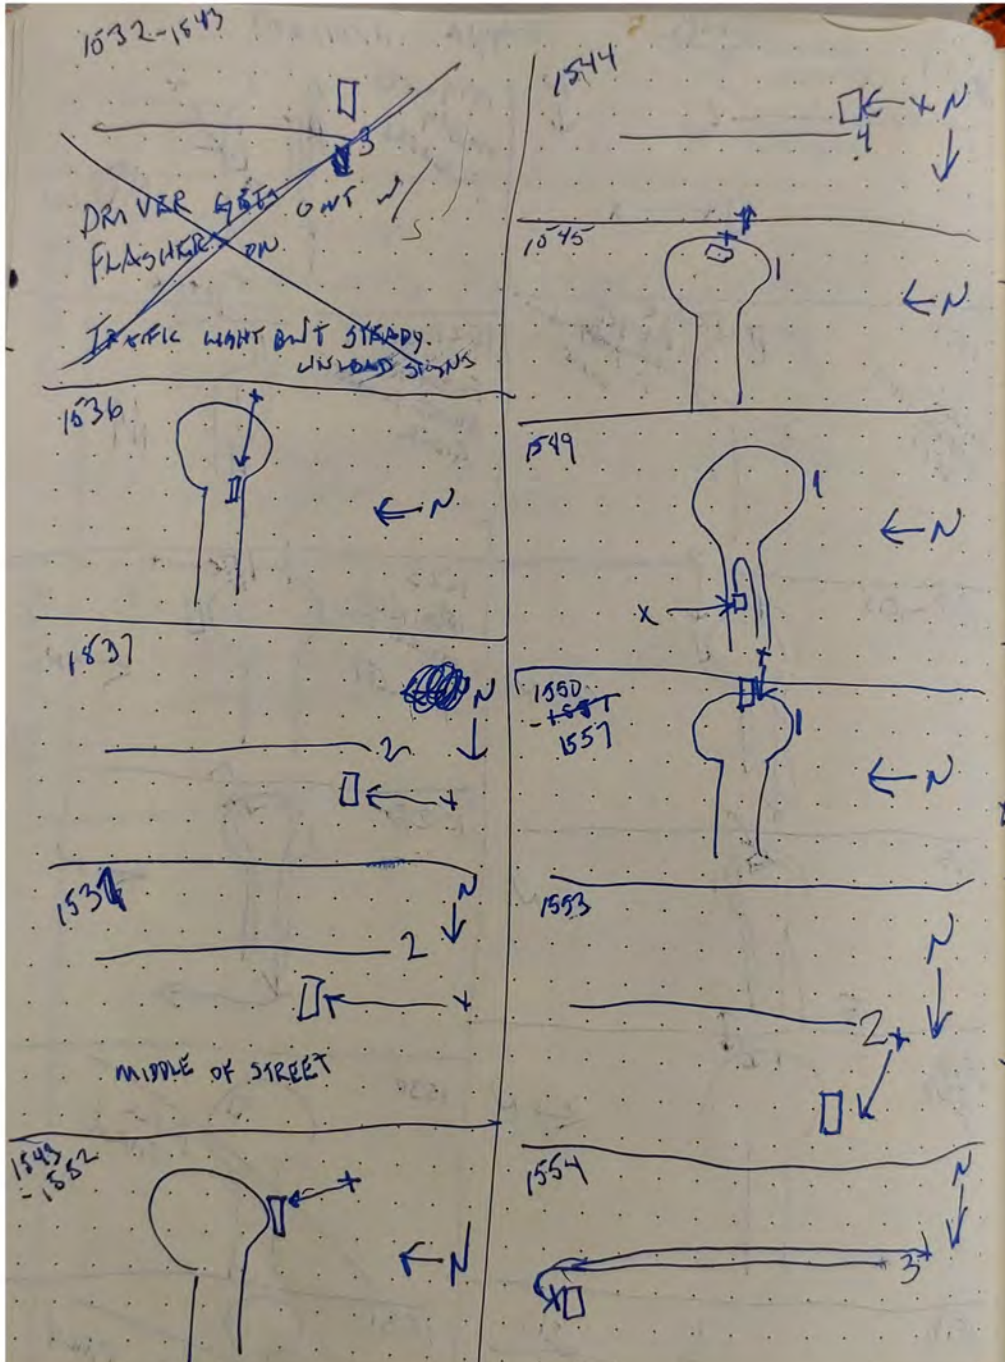 1532-1543
3
DRIVER GETS OUT W/
FLASHERS ON
TRAFFIC LIGHT BUT STEADY.
UNLOAD SIGNS
1536
N
1537
N
2
X
153
N
2
X
MIDDLE OF STREET
1549
-1552
X
N
1544
X N
4
1545
1
N
1549
1
N
X
1550
1557
1
N
1553
N
2 X
1554
N
3
X